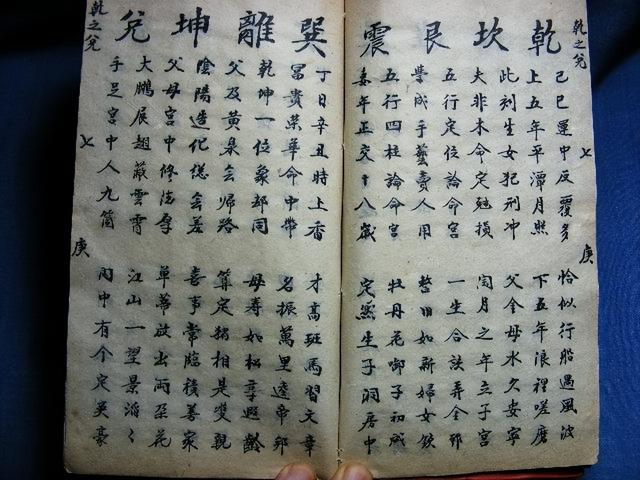 乾之兌
七
庚
乾坎艮震
己巳運中反覆多 恰似行船遇風波
上五年平潭月照 下五年浪裡嗟磨
此刻生女犯刑冲 父金母水久安寧
夫非木命定尅損 閏月之年立子宮
五行定位論命宮 一生合該弄金
學成手藝賣人用 整旧如新婦女釵
五行四柱論命宮 牡丹花子初成
年正交十八歲 定然生子洞房中
巽離坤兌
丁日辛丑時上香 才高班馬習文章
富貴榮華命中帶 名振萬里達帝邦
乾坤一位象同 母壽如松享遐齡
父及黃泉去歸路 算定猪相是雙親
陰陽造化總無差 喜事常臨積善家
父母宮中修法厚 單蒂放出兩朶花
大鵬展翅蔽雲霄 江山一望景滔々
手足宮中人九箇 內中有个定英豪
乾之兌
七
庚